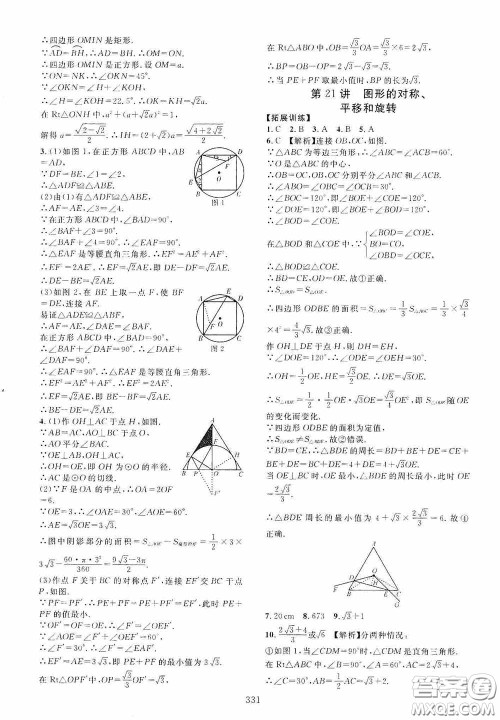 ∴四边形OMIN是矩形.
∵AD=BH,∴AD=BH.∴OM=ON.
∴四边形OMIN是正方形.设OM=a.
∵ON=NK,∴∠OKN=45°.
∵∠OKN=∠KOH+∠OHK,
∴∠KOH=∠KHO=22.5°,∴OK=KH=√2a.
在Rt△OHN中,a²+(a+√2a)²=1.
3.(1)如图1,在正方形ABCD中,AB=AD.
∵∠3=∠4,BE=DF,
∴△ADF≌△ABE.
(2)由(1)有△ADF≌△ABE,
∴AF=AE,∠3=∠4.
图1
在正方形ABCD中,∠BAD=90°.
∴∠BAF+∠3=90°.
∴∠BAF+∠4=90°.∴∠EAF=90°.
∴△EAF是等腰直角三角形.∴EF²=AE²+AF².
∴EF²=2AE².∴EF=√2AE.
即DE-DF=√2AE.
∴DE-BE=√2AE.
(3)如图2,在BE上取一点F,使BF=
DE,连接AF.
易证△ADE≌△ABF,
∴AF=AE,∠DAE=∠BAF.
在正方形ABCD中,∠BAD=90°.
∴∠BAF+∠DAF=90°.
图2
∴∠DAE+∠DAF=90°.
∴∠EAF=90°.∴△EAF是等腰直角三角形.
∴EF²=AE²+AF².∴EF²=2AE².
∴EF=√2AE.即BE-BF=√2AE.
∴BE-DE=√2AE.
4.(1)作OH⊥AC于点H,如图.
∵AB=AC,AO⊥BC于点O,
∴AO平分∠BAC.
∵OE⊥AB,OH⊥AC,
∴OH=OE.即OH为⊙O的半径.
∴AC是⊙O的切线.
(2)∵点F是OA的中点,∴OA=2OF
=6.
∵OE=3,∴∠OAE=30°,∠AOE=60°.
∴AE=3√3.
∴图中阴影部分的面积=S△AOE-S扇形EOF=1/2×3×
3√3-60·π·3²/360=(9√3-3π)/2.
(3)作点F关于BC的对称点F′,连接EF′交BC于点
P,如图.
∵PF=PF′,∴PE+PF=PE+PF′=EF′,此时PE+
PF的值最小.
∵OF′=OF=OE,∴∠F′=∠OEF′.
∵∠AOE=∠F′+∠OEF′=60°,
∴∠F′=30°.∴∠F′=∠EAF′.
∴EF′=EA=3√3.即PE+PF的最小值为3√3.
在Rt△OPF′中,OP=√3/3OF′=√3.
在Rt△ABO中,OB=√3/3OA=√3/3×6=2√3.
∴BP=OB-OP=2√3-√3=√3.
∴当PE+PF取最小值时,BP的长为√3.
第21讲 图形的对称、
平移和旋转
【拓展训练】
1.C 2.B 3.A 4.B 5.A
6.C 【解析】连接OB,OC,如图.
∵△ABC为等边三角形,∴∠ABC=∠ACB=60°.
∵O是△ABC的中心,
∴OB=OC,OB,OC分别平分∠ABC和∠ACB.
∴∠ABO=∠OBC=∠OCB=30°.
∴∠BOC=120°,即∠BOE+∠COE=120°.
∵∠DOE=120°,即∠BOE+∠BOD=120°,
∴∠BOD=∠COE.
在△BOD和△COE中,
∠BOD=∠COE,
BO=CO,
∠OBD=∠OCE,
∴△BOD≌△COE.
∴BD=CE,OD=OE.故①正确.
∴S△BOD=S△COE.
∴四边形ODBE的面积=S△OBC=1/3S△ABC=1/3×√3/4
×4²=4/3√3.故③正确.
作OH⊥DE于点H,则DH=EH,
∵∠DOE=120°,∴∠ODE=∠OEH=30°.
∴S△ODE=1/2·1/2OE·√3OE=√3/4OE².即S△ODE随OE
的变化而变化.
∵四边形ODBE的面积为定值,
∴S△ODE≠S△BDE.故②错误.
∵BD=CE,∴△BDE的周长=BD+BE+DE=CE+
BE+DE=BC+DE=4+DE=4+√3OE.
当OE⊥BC时,OE最小,△BDE的周长最小,此时
OE=2√3/3.
∴△BDE周长的最小值为4+√3×2√3/3=6.故④
正确.
7.20cm 8.673 9.√3+1
10.(2√3+4)/3或√6 【解析】分两种情况:
①如图1,当∠CDM=90°时,△CDM是直角三角形.
331